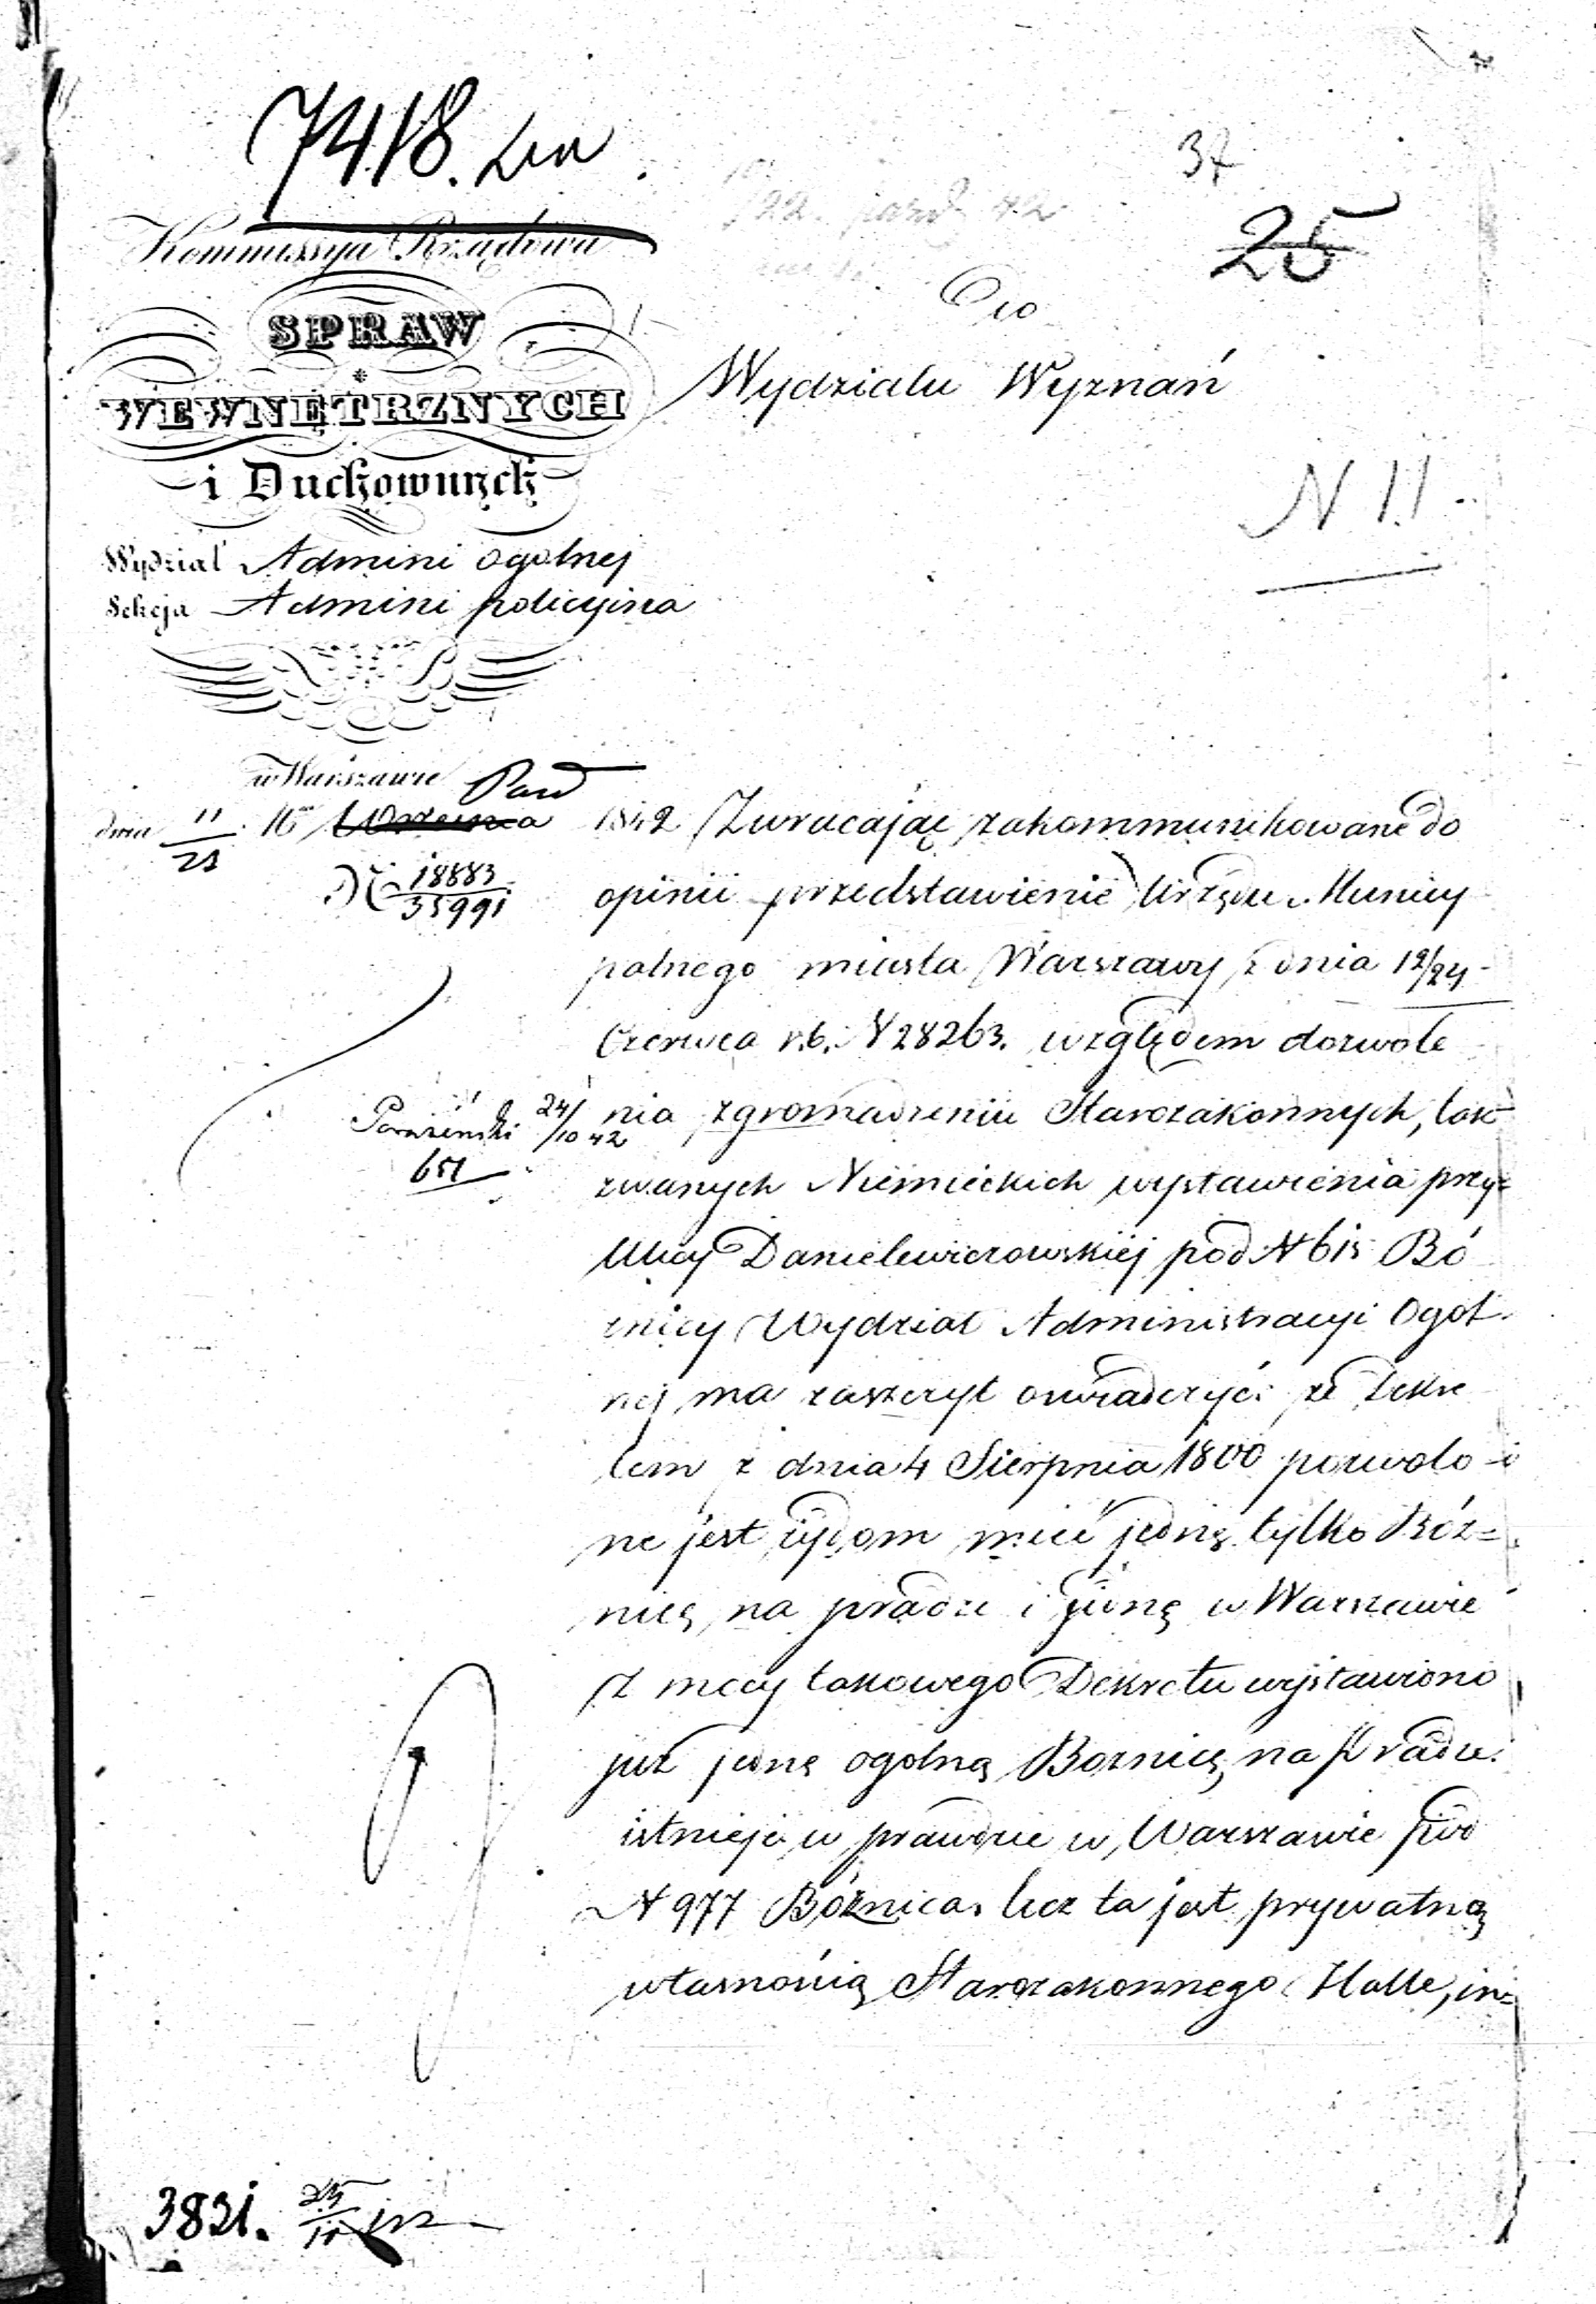 7418.
37
25
Kommissya Rządowa
SPRAW
WEWNĘTRZNYCH
i Duchownych
Do
Wydziału Wyznań
N 11
Wydział Admini ogolnej
Sekcja Admini policyina
w Warszawie Paźd
dnia 11/23 Września 1842 Zwracając zakommunikowane do
N 18883/35991 opinii przedstawienie Urzędu Municy
palnego miasta Warszawy z dnia 12/24
Czerwca r.b. N 28263. względem dozwole
24/10 42 nia zgromadzeniu Starozakonnych, tak
651 zwanych Niemieckich wystawienia przy
Ulicy Danielewiczowskiéj pod N 615 Bó
znicy Wydział Administracyi Ogol
nej ma zaszczyt oświadczyć: że Dekre
tem z dnia 4 Sierpnia 1800 pozwolo
ne jest żydom mieć jedną tylko Bóz=
nicę na pradze i jedną w Warszawie
Z mocy takowego Dekretu wystawiono
już jedną ogolną Boznicę na Pradze.
istnieje w prawdzie w Warszawie pod
N 977 Bóżnica, lecz ta jest prywatną
własnością Starozakonnego Halle, in=
3831.